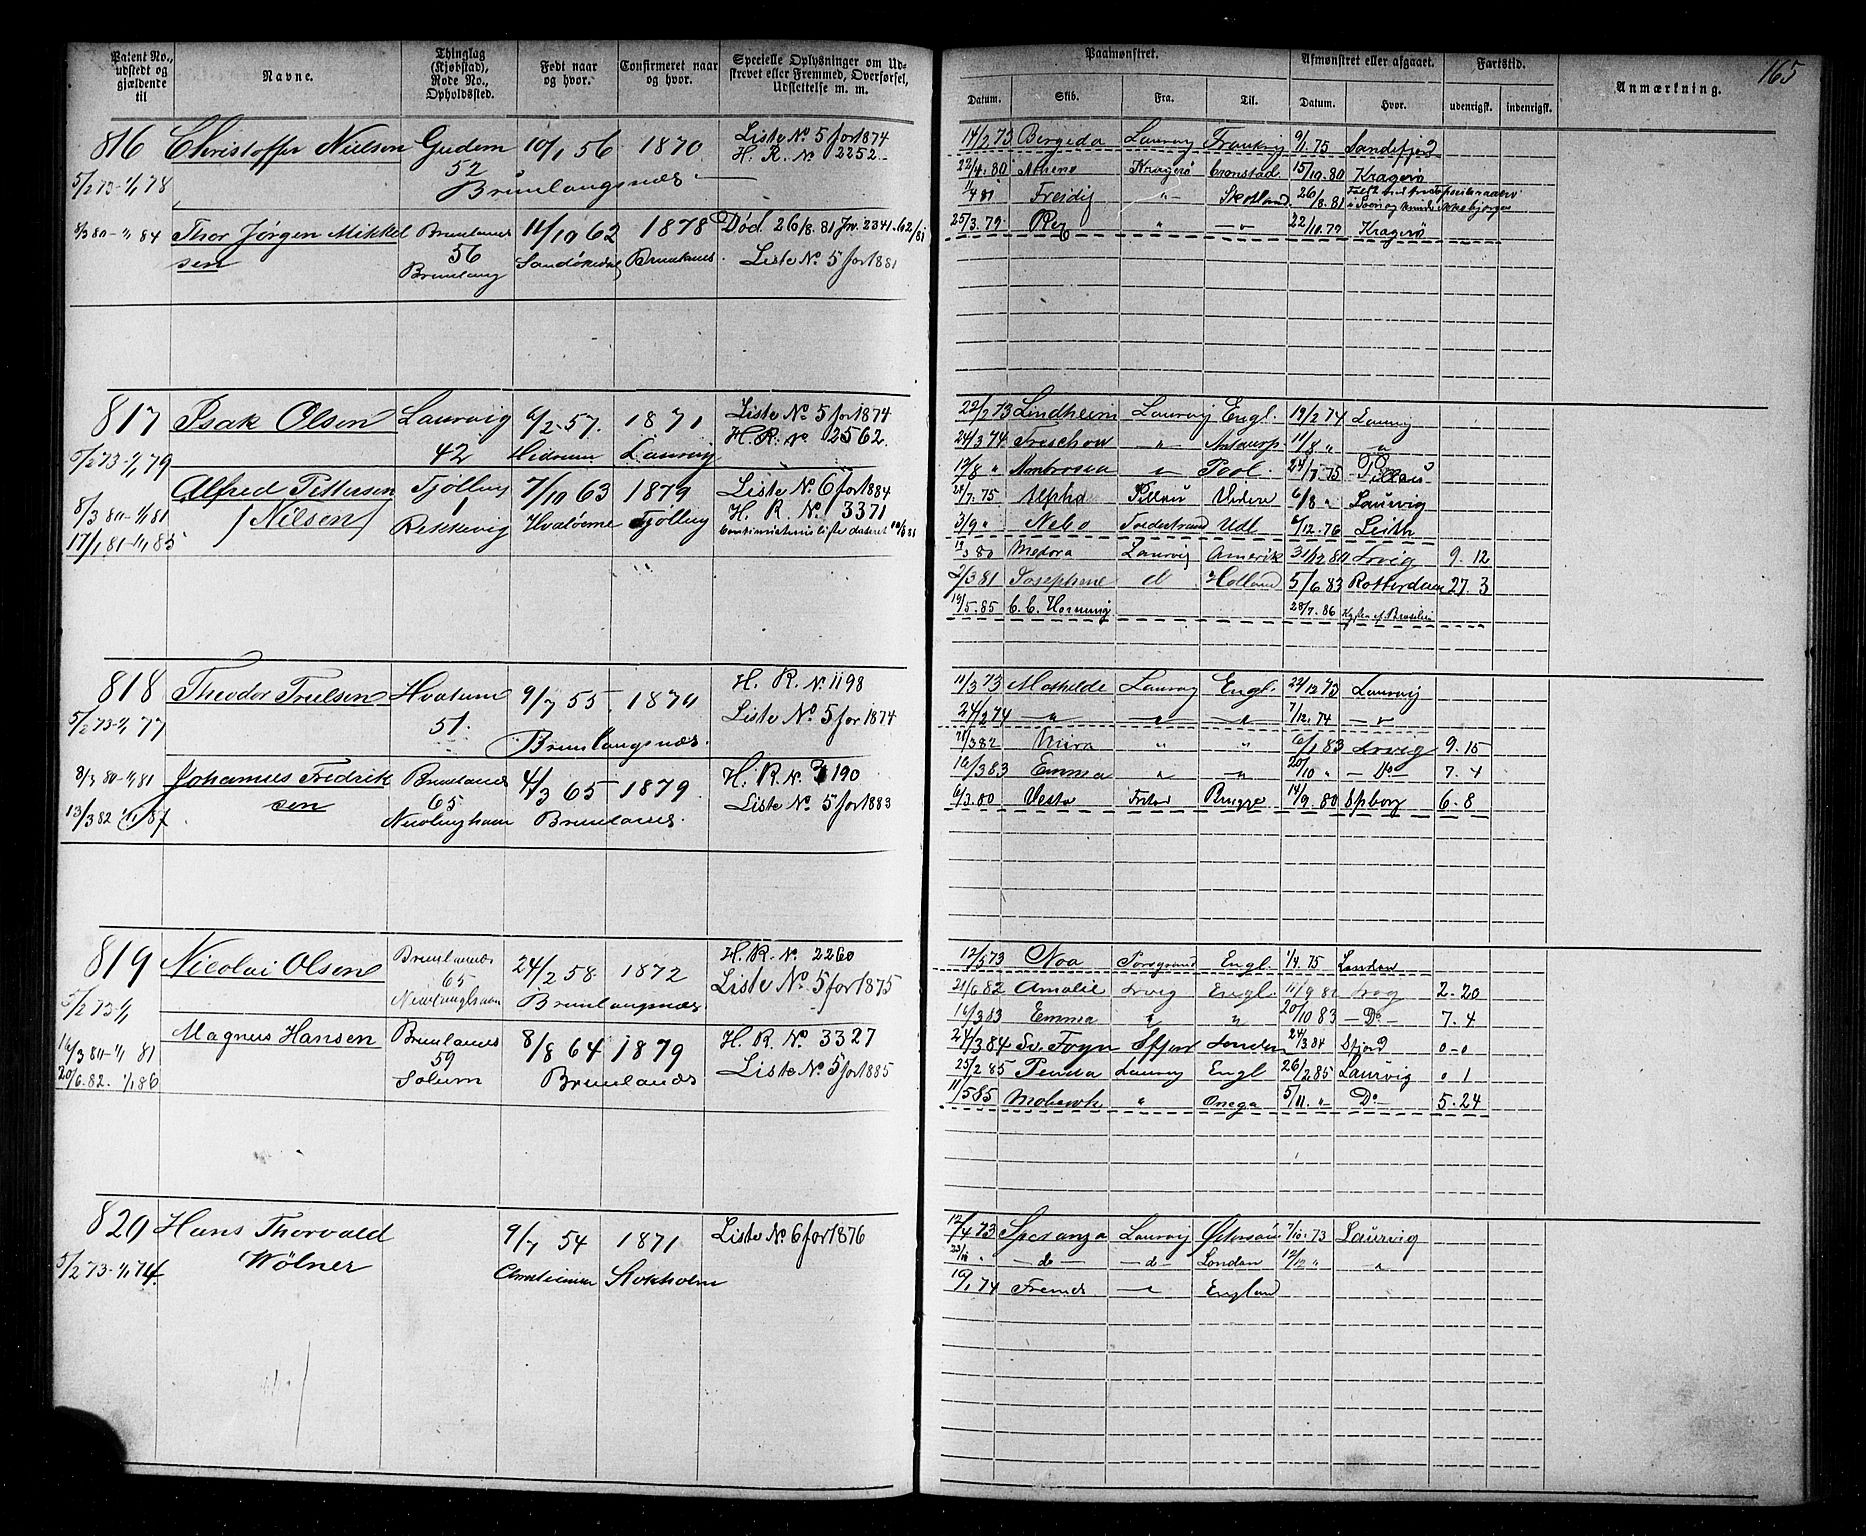 165
Patent No., udstedt og gjældende til
Navne.
Thinglag (Kjøbstad), Rode No., Opholdssted.
Født naar og hvor.
Confirmeret naar og hvor.
Specielle Oplysninger om Udskrevet eller Fremmed, Overførsel, Udslettelse m. m.
Paamønstret.
Afmønstret eller afgaaet.
Fartstid.
Anmærkning.
Datum. Skib. Fra. Til. Datum. Hvor. udenrigsk. indenrigsk.
816 Christoffer Nielsen Gudem 10/1 56 1870 Liste No 5 for 1874
52 H. R. No 2252
5/2 73-1/1 78 Brunlangsnæs
8/3 80-1/1 84 Thor Jørgen Mikkel Brunlanes 11/10 62 1878 Død 26/8. 81 Jnr. 2341. 62/81
sen 56 Sandøkedal Brunlanes Liste No. 5 for 1881
Brunlang
14/2 73 Bergida Laurvig Frankrig 9/1. 75 Sandefjord
22/4. 80 Athene Kragerø Cronstad 15/10. 80 Kragerø
1/4 81 Freidig " Skotland 26/8. 81
25/3. 79 Reg " " 22/11. 79 Kragerø
817 Isak Olsen Laurvig 6/2 57. 1871 Liste No 5 for 1874
42 Hedrum Laurvig H. R. No 2562.
5/2 73-1/1 79
Alfred Pettersen Tjølling 7/10 63 1879 Liste No. 6 for 1884
8/3 80-1/1 81 (Nilsen) 1 H. R. No. 3371
17/1 81-1/1 85 Rekkevig Hvaløerne Tjølling
22/2 73 Lindheim Laurvig Engl. 19/2 74 Laurvig
24/3 74 Treschow " Antwerp 11/8 " "
12/8 " Ambrosia " Pool. 24/7. 75 Pillau
24/7. 75 Alpha Pillau 6/8 " Laurvig
3/9 " Nebo Fredestrand Udl. 6/12. 76 Leith
12/3 80 Medora Laurvig Amerik 31/12 80 Lrvig 9. 12
2/3 81 Josephine d Holland 5/6 83 Rotterdam 27. 3
19/5. 85 C. C. Hornung 28/7. 86 Kysten af Brasilien
818 Theodor Trulsen Hvatum 9/7 55. 1870 H. R. No. 1198
5/2 73-1/1 77 51. Liste No. 5 for 1874
Brunlangsnæs.
8/3 80-1/1 81 Johannes Fredrik Brunlanes 4/3 65 1879 H. R. No. 3190
sen 65 Liste No. 5 for 1883
13/3 82-1/1 87 Nevlunghavn Brunlanes.
11/3 73 Mathilde Laurvig Engl. 22/12 73 Laurvig
24/2 74 " " " 7/12. 74 "
21/3 82 " " 6/1 83 Lrvig 9. 15
16/3 83 Emma " " 20/10 " Do 7. 4
6/3. 80 Vesta Frstad Brugge 14/9. 80 Spborg 6. 8
819 Nicolai Olsen Brunlanæs 24/2 58 1872 H. R. No. 2260
65 Liste No. 5 for 1875
5/2 73 1/1 Nevlunghavn Brunlangsnæs
Magnus Hansen Brunlanes 8/8 64 1879 H. R. No. 3327
16/3 80-1/1 81 59 Liste No. 5 for 1885
20/6. 82. 1/1 86 Solum Brunlanæs
12/5 73 Noa Porsgrund Engl. 1/4. 75 London
21/6 82 Amalie Lrvig Engl. 11/9 82 Lrvg 2. 20
16/3 83 Emma " " 20/10 83 Do 7. 4
24/3 84 Sv. Foyn Sfjord London 24/3. 84 Sfjord 0-0
25/2. 85 Penda Laurvig Engl 26/2. 85 Laurvig 0 1
11/5 85 Mohawk " Onega 5/11. " Do 5. 24
820 Hans Thorvald 9/7 54 1871 Liste No 6 for 1876
5/2 73-1/1 74. Wölner Christiania Stokholm
12/4 73 Speranza Laurvig Østersøen 7/10. 73 Laurvig
23/10 " do d London 12/12 " "
10/1 74 Fremad " England